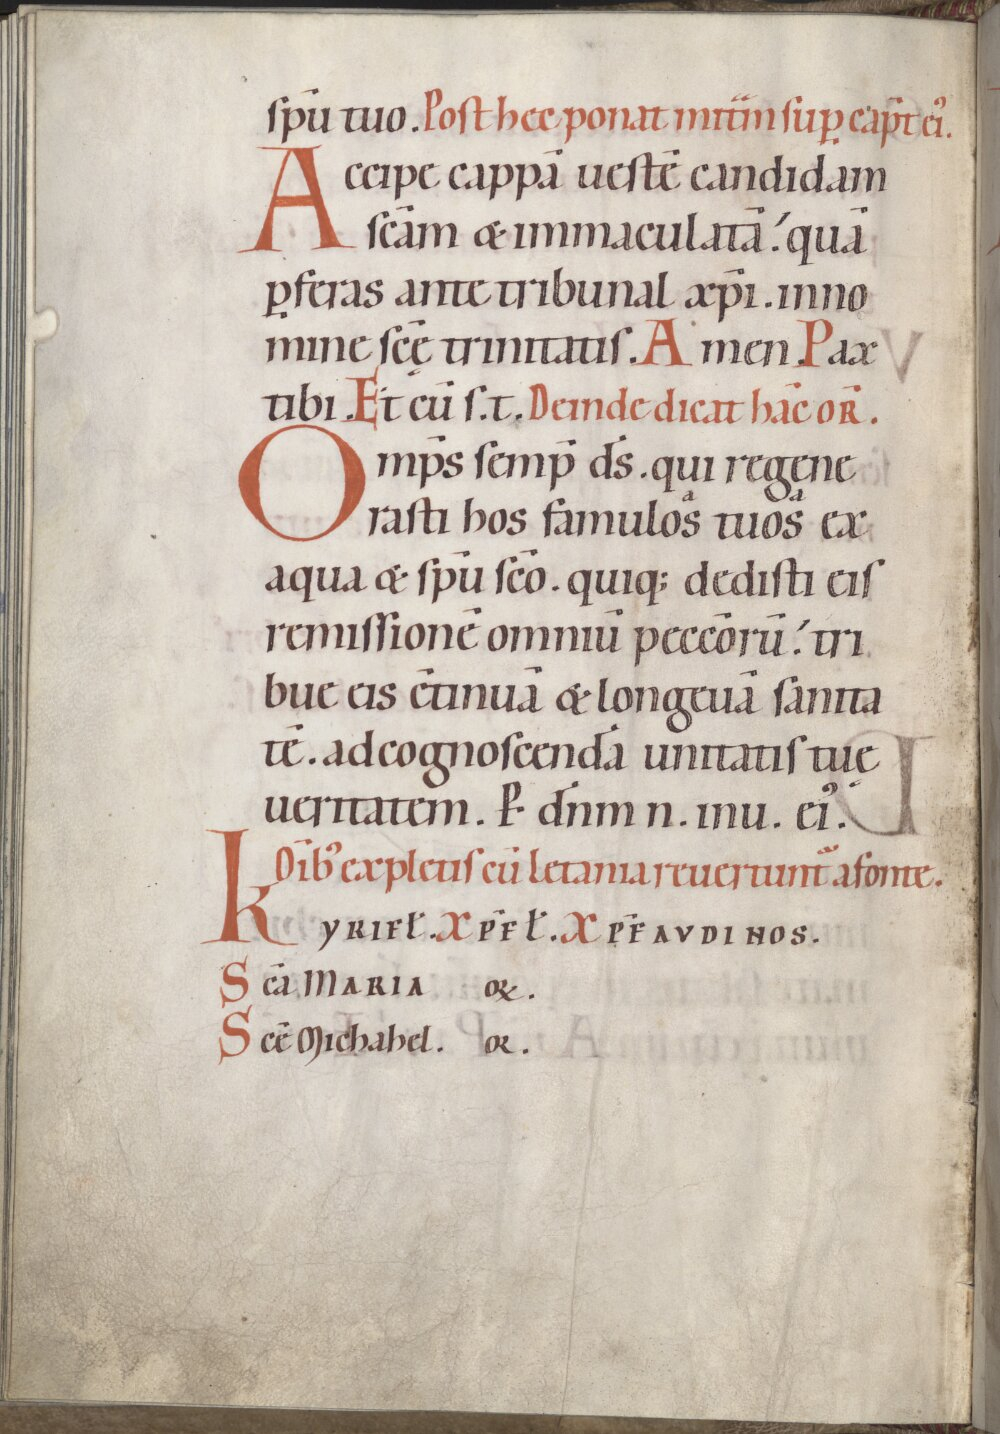 sp̄u tuo. Post hec ponat mit̄m sup̱ cap̄t ei᾽.
Accipe cappā uestē candidam
sc̄am & immaculatā. quā
p̱feras ante tribunal xp̄i. inno
mine sc̄ę trinitatis. Amen. Pax
tibi. Et cū s.t. Deinde dicat hāc oR̄.
Omp̄s semp̄ d̄s. qui regene
rasti hos famulosͣ tuosͣ ex
aqua & sp̄u sc̄o. quiq; dedisti eis
remissionē omniū pecc̄orū. tri
bue eis c̄tinuā & longeuā sanita
tē. ad cognoscend̄a unitatis tuę
ueritatem. P. d̄nm n. inu. ei᾽.
Om̄ib᾽ expletis cū letania reuertunt᾽ a fonte.
KYRIEɫ. XP̄Eɫ. XP̄E AVDI NOS.
Sc̄a MARIA or̄.
Sc̄e Michahel. or.